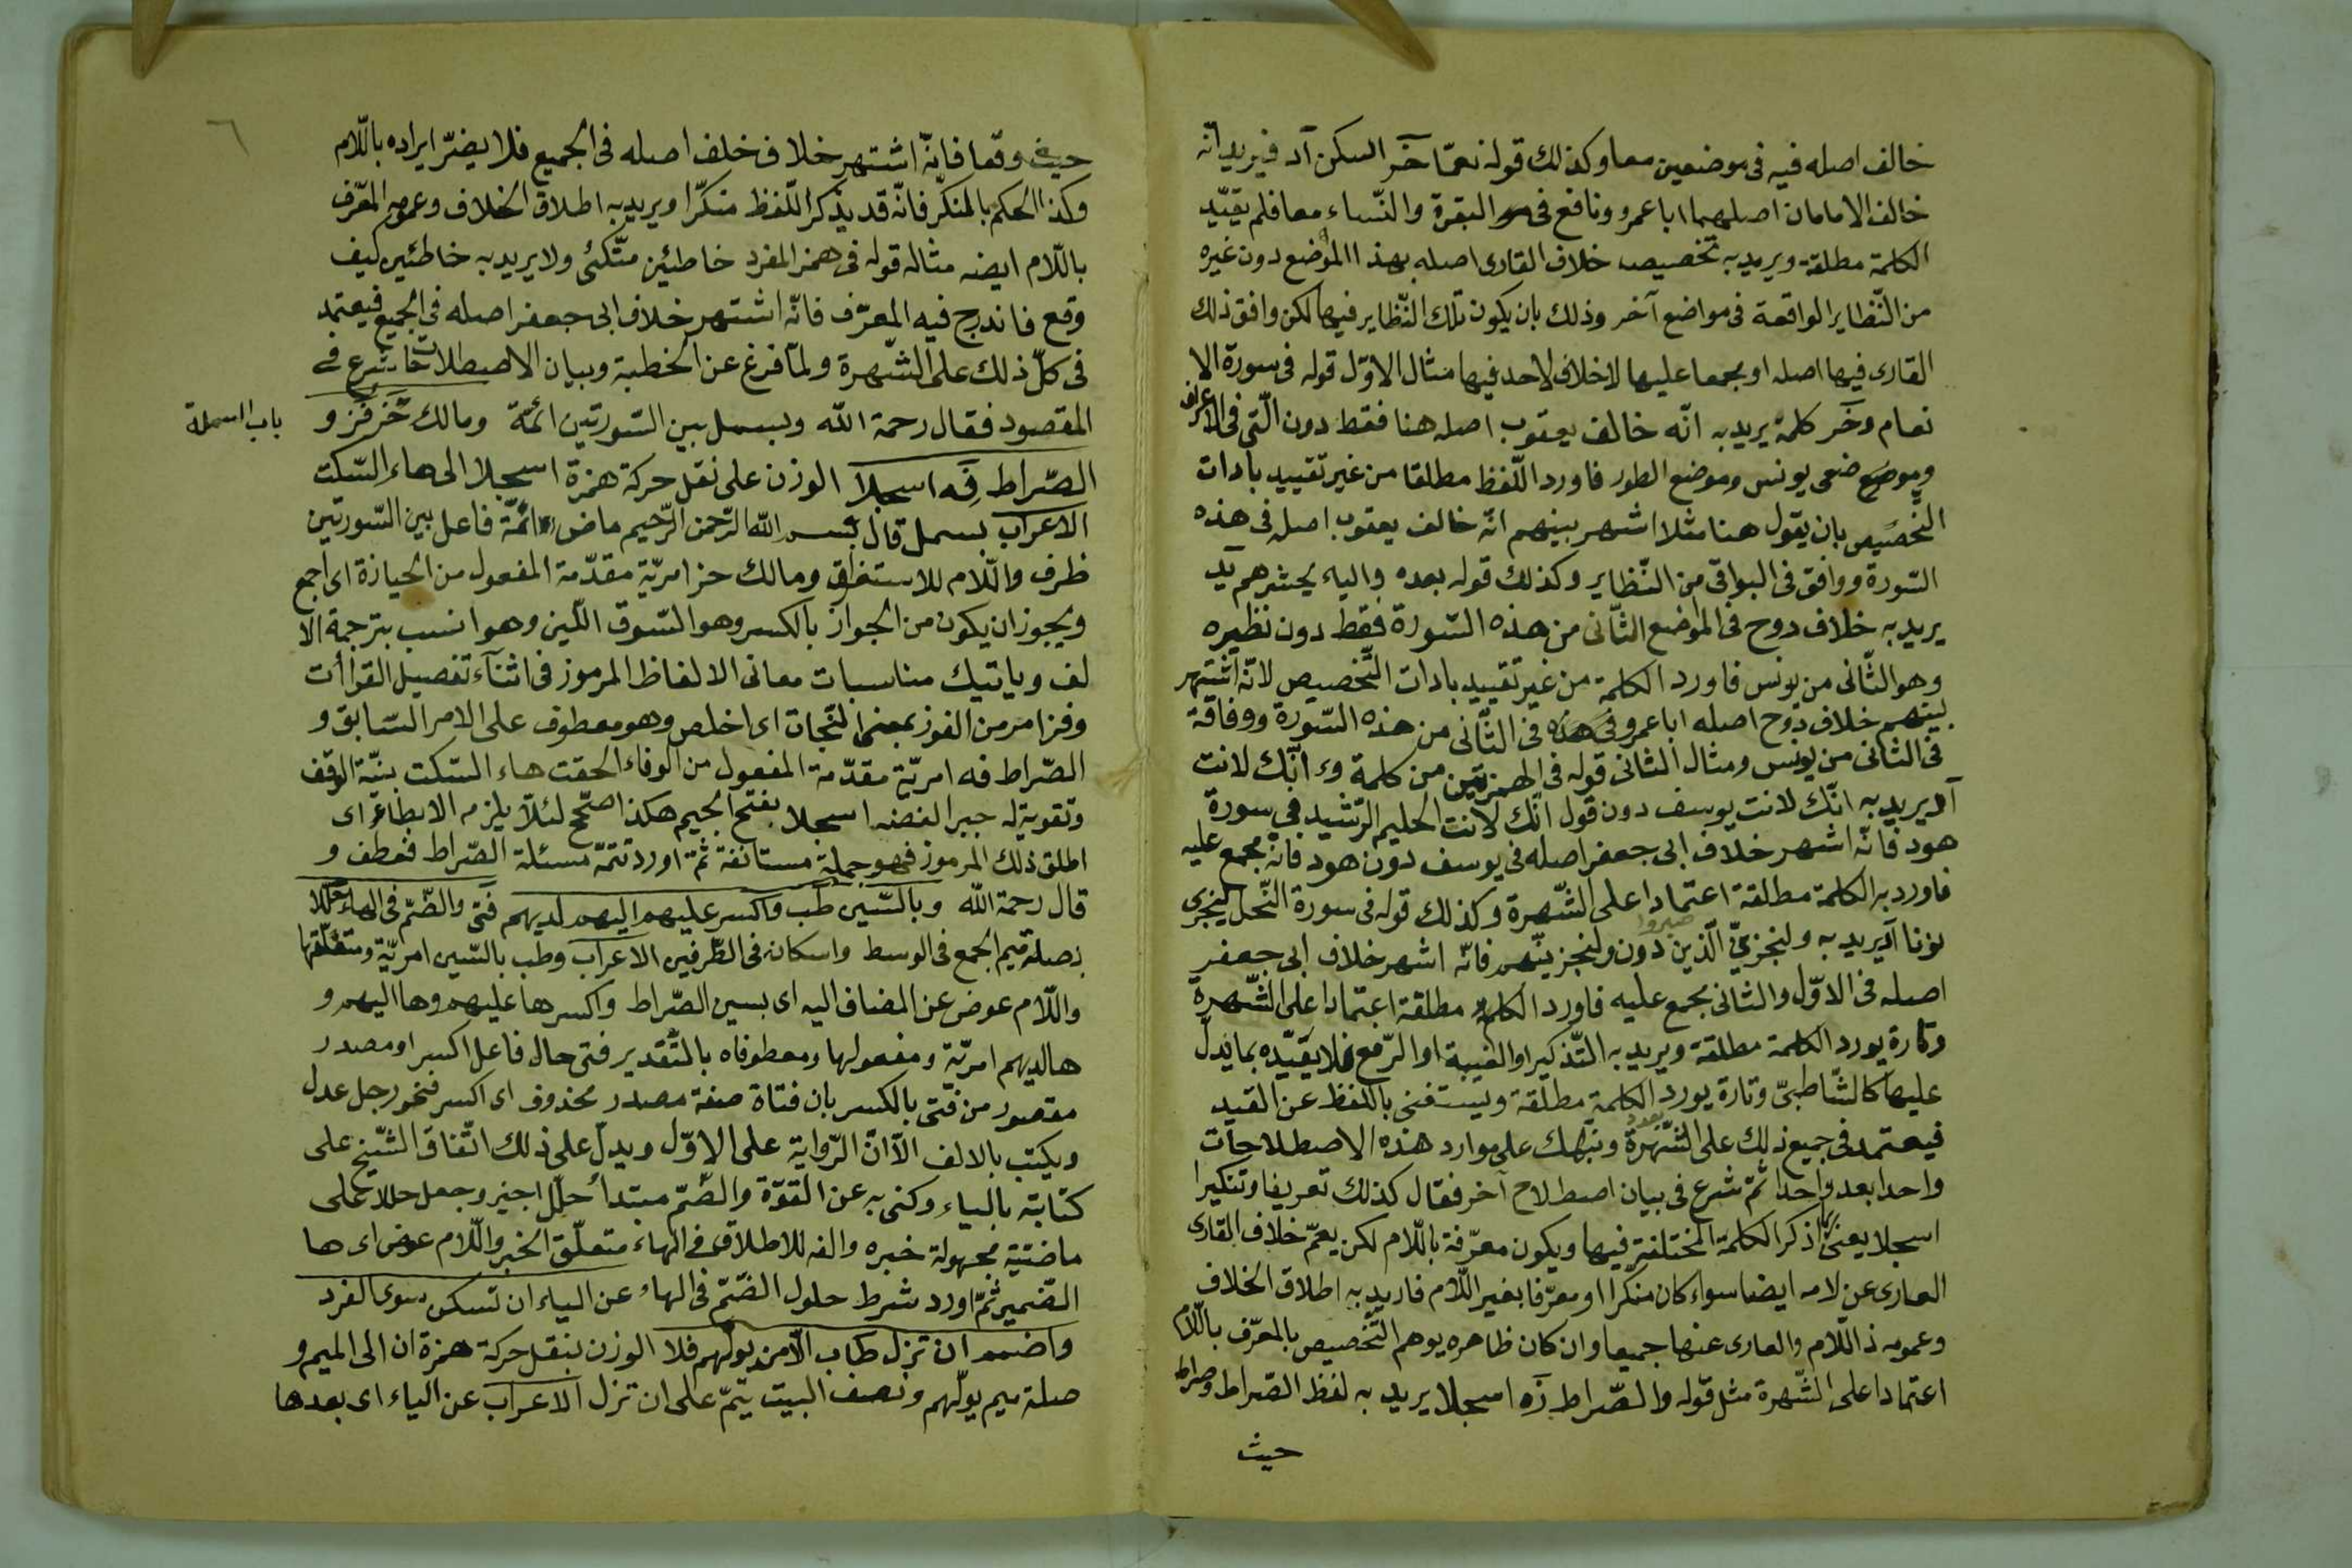 خالف اصله فيه فى موضعين معا وكذلك قوله نعمّا حز اسكن أد فيريد انّه
خالف الامامان اصلهما ابا عمرو ونافع فى البقرة والنّساء معا فلم يقيّد
الكلمة مطلقة ويريد به تخصيص خلاف القارى اصله بهذا الموضع دون غيره
من النّظاير الواقعة فى مواضع آخر وذلك بان يكون تلك النّظاير فيها لكن وافق ذلك
القارى فيها اصله او مجمعا عليها لا خلاف لاحد فيها مثال الاوّل قوله فى سورة الا
نعام وحز كلمة يريد به انّه خالف يعقوب اصله هنا فقط دون الّتى فى الاعراف
وموضعى يونس وموضع الطور فاورد اللّفظ مطلقا من غير تقييد بادات
التّخصيص بان يقول هنا مثلا اشهر بينهم انّه خالف يعقوب اصله فى هذه
السّورة ووافق فى البواقى من النّظاير وكذلك قوله بعده والياء يحشرهم يد
يريد به خلاف روح فى الموضع الثّانى من هذه السّورة فقط دون نظيره
وهو الثّانى من يونس فاورد الكلمة من غير تقييد بادات التّخصيص لانّه اشتهر
بينهم خلاف روح اصله ابا عمرو فى هذه فى الثّانى من هذه السّورة ووفاقه
فى الثانى من يونس ومثال الثانى قوله فى الهمزتين من كلمة وء انّك لانت
أد يريد به انّك لانت يوسف دون قول انّك لانت الحليم الرّشيد فى سورة
هود فانّه اشهر خلاف ابى جعفر اصله فى يوسف دون هود فانّه مجمع عليه
فاورد به الكلمة مطلقة اعتمادا على الشّهرة وكذلك قوله فى سورة النّحل ليجزى
نونا أد يريد به ولنجزينّ الّذين صبروا دون ولنجزينّهم فانّه اشهر خلاف ابى جعفر
اصله فى الاوّل والثانى مجمع عليه فاورد الكلمة مطلقة اعتمادا على الشّهرة
وتارة يورد الكلمة مطلقة ويريد به التّذكير او الغيبة او الرّفع فلا يقيّده بما يدلّ
عليها كالشّاطبىّ وتارة يورد الكلمة مطلقة ويستغنى باللّفظ عن القيد
فيعتمد فى جميع ذلك على الشّهرة وننبّهك على موارد هذه الاصطلاحات
واحدا بعد واحد ثمّ شرع فى بيان اصطلاح آخر فقال كذلك تعريفا وتنكيرا
اسجلا يعنى اذكر الكلمة المختلفة فيها ويكون معرّفة باللّام لكن يعمّ خلاف القارى
العارى عن لامه ايضا سواء كان منكّرا او معرّفا بغير اللّام فاريد به اطلاق الخلاف
وعمومه ذا اللّام والعارى عنها جميعا وان كان ظاهره يوهم التّخصيص بالمعرّف باللّام
اعتمادا على الشّهرة مثل قوله والصّراط فه اسجلا يريد به لفظ الصّراط وصراط
حيث
٦
حيث وقعا فانّه اشتهر خلاف خلف اصله فى الجميع فلا يضرّ ايراده باللّام
وكذا الحكم بالمنكّر فانّه قد يذكر اللّفظ منكّرا ويريد به اطلاق الخلاف وعموم المعرّف
باللّام ايضه مثاله قوله فى همز المفرد خاطئين متّكئى ولا يريد به خاطئين كيف
وقع فاندرج فيه المعرّف فانّه اشتهر خلاف ابى جعفر اصله فى الجميع فيعتمد
فى كلّ ذلك على الشّهرة ولمّا فرغ عن الخطبة وبيان الاصطلاحات شرع فى
المقصود فقال رحمة الله وبسمل بين السّورتين ائمّة ومالك حز فز و
باب البسملة
الصّراط فه اسجلا الوزن على نقل حركة همزة اسجلا الى هاء السّكت
الاعراب بسمل قال بسم الله الرّحمن الرّحيم ماض ائمّة فاعل بين السّورتين
ظرف واللّام للاستغراق ومالك حز امريّة مقدّمة المفعول من الحيازة اى اجمع
ويجوز ان يكون من الحواز بالكسر وهو السّوق اللّين وهو انسب بترجمة الا
لف وياتيك مناسبات معانى الالفاظ المرموز فى اثناء تفصيل القراأت
وفز امر من الفوز بمعنى النّجات اى اخلص وهو معطوف على الامر السّابق و
الصّراط فه امريّة مقدّمة المفعول من الوفاء الحقت هاء السّكت بنيّة الوقف
وتقوية له جبرا لنقضه اسجلا بفتح الجيم هكذا صحّ لئلّا يلزمه الايطاء اى
اطلق ذلك المرموز فهو جملة مستانفة ثمّ اورد تتمّة مسئلة الصّراط فعطف و
قال رحمة الله وبالسّين طب واكسر عليهم اليهم لديهم فتى والضّمّ فى الهاء حلّلا
بصلة ميم الجمع فى الوسط واسكانه فى الطّرفين الاعراب وطب بالسّين امريّة ومتعلّقها
واللّام عوض عن المضاف اليه اى بسين الصّراط واكسر ها عليهم وها اليهم و
ها لديهم امريّة ومفعولها ومعطوفاه بالتّقدير فتى حال فاعل اكسر او مصدر
مقصور من فتى بالكسر بان فتاة صفة مصدر محذوف اى اكسر فنحو رجل عدل
ويكتب بالالف الّا انّ الرّواية على الاوّل ويدلّ على ذلك اتّفاق الشّيخ على
كتابته بالياء وكنى به عن القوّة والضّمّ مبتدأ حلّل اجيز وجعل حلالا على
ماضيّة مجهولة خبره والفه للاطلاق فى الهاء متعلّق الخبر واللّام عوض اى ها
الضّمير ثمّ اورد شرط حلول الضّمّ فى الهاء عن الياء ان تسكن سوى الفرد
واضمم ان تزل طاب الّا من يولّهم فلا الوزن بنقل حركة همزة ان الى الميم و
صلة ميم يولّهم ونصف البيت يتمّ على ان تزل الاعراب عن الياء اى بعدها